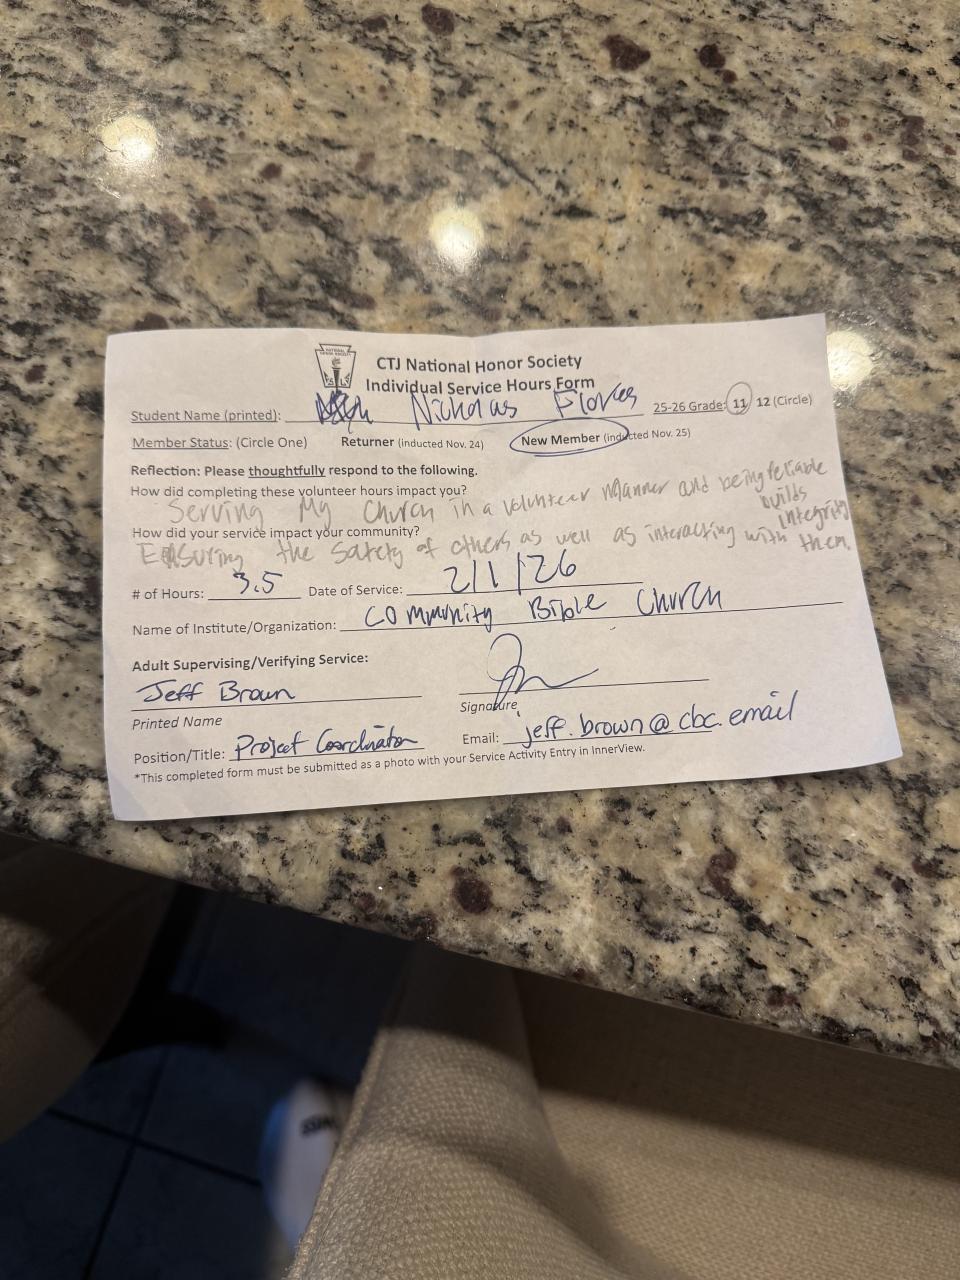 NATIONAL
HONOR SOCIETY
CTJ National Honor Society
Individual Service Hours Form
Student Name (printed): Nicholas Flores 25-26 Grade: 11 12 (Circle)
Member Status: (Circle One) Returner (inducted Nov. 24) New Member (inducted Nov. 25)
Reflection: Please thoughtfully respond to the following.
How did completing these volunteer hours impact you?
Serving My Church in a volunteer manner and being reliable builds integrity
How did your service impact your community?
Ensuring the safety of others as well as interacting with them.
# of Hours: 3.5 Date of Service: 2/1/26
Name of Institute/Organization: Community Bible Church
Adult Supervising/Verifying Service:
Jeff Brown
Printed Name Signature
Position/Title: Project Coordinator Email: jeff.brown@cbc.email
*This completed form must be submitted as a photo with your Service Activity Entry in InnerView.